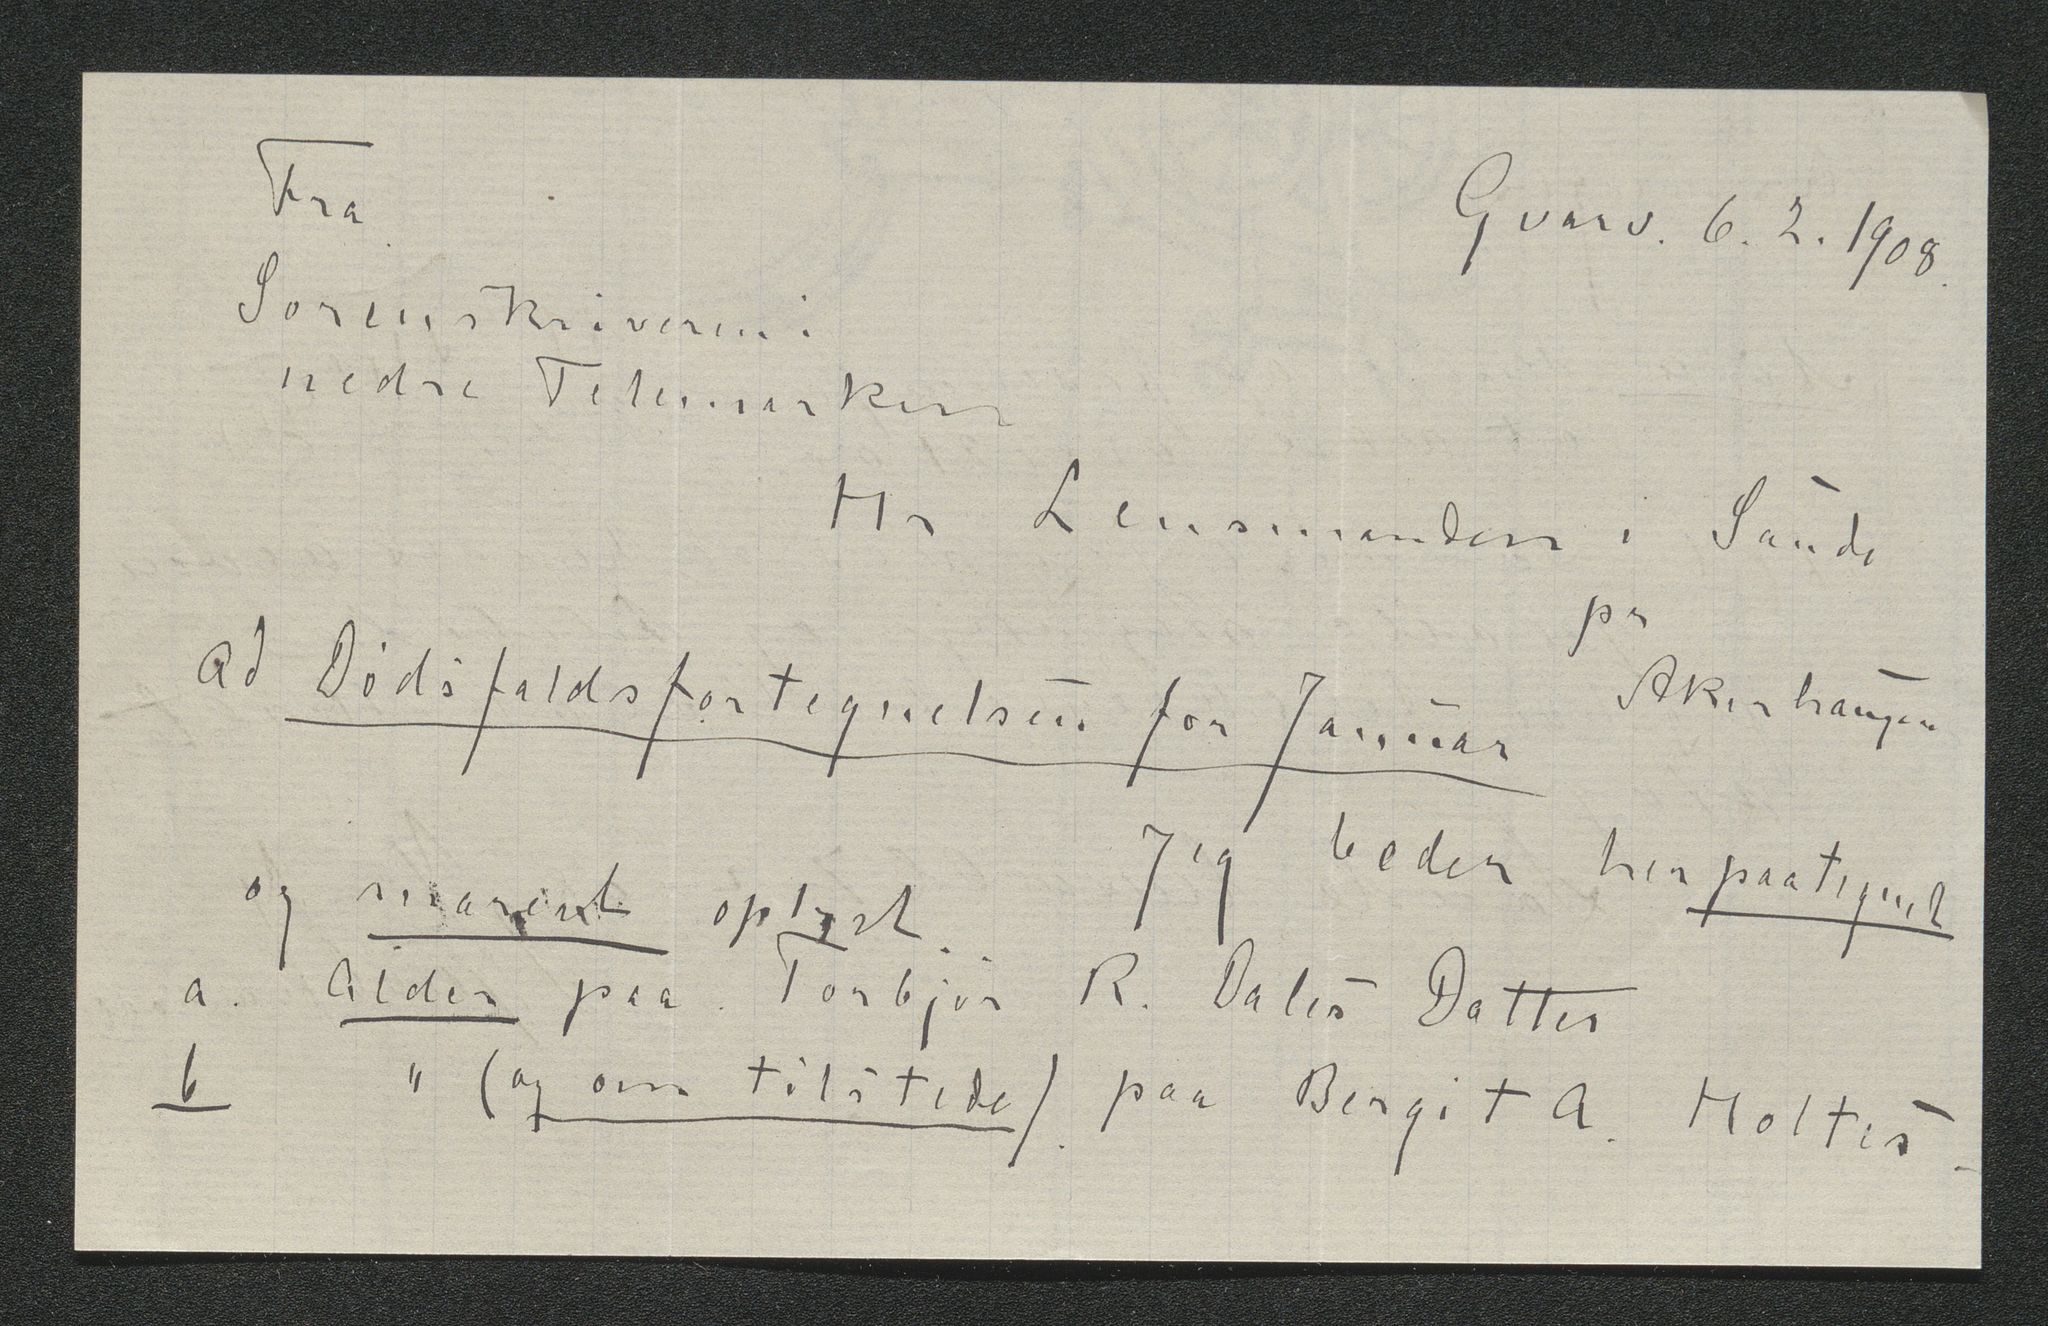 Fra
Gvarv. 6. 2. 1908.
Sorenskriveren i
nedre Telemarken
Hr Lensmanden i Saude
pr
Akerhaugen
ad Dødsfaldsfortegnelsen for Januar
Jeg beder her paategnet
og snarest oplyst
a. Alder paa Torbjør R. Dales Datter
b " (og om tilstede) paa Bergit A. Holtes